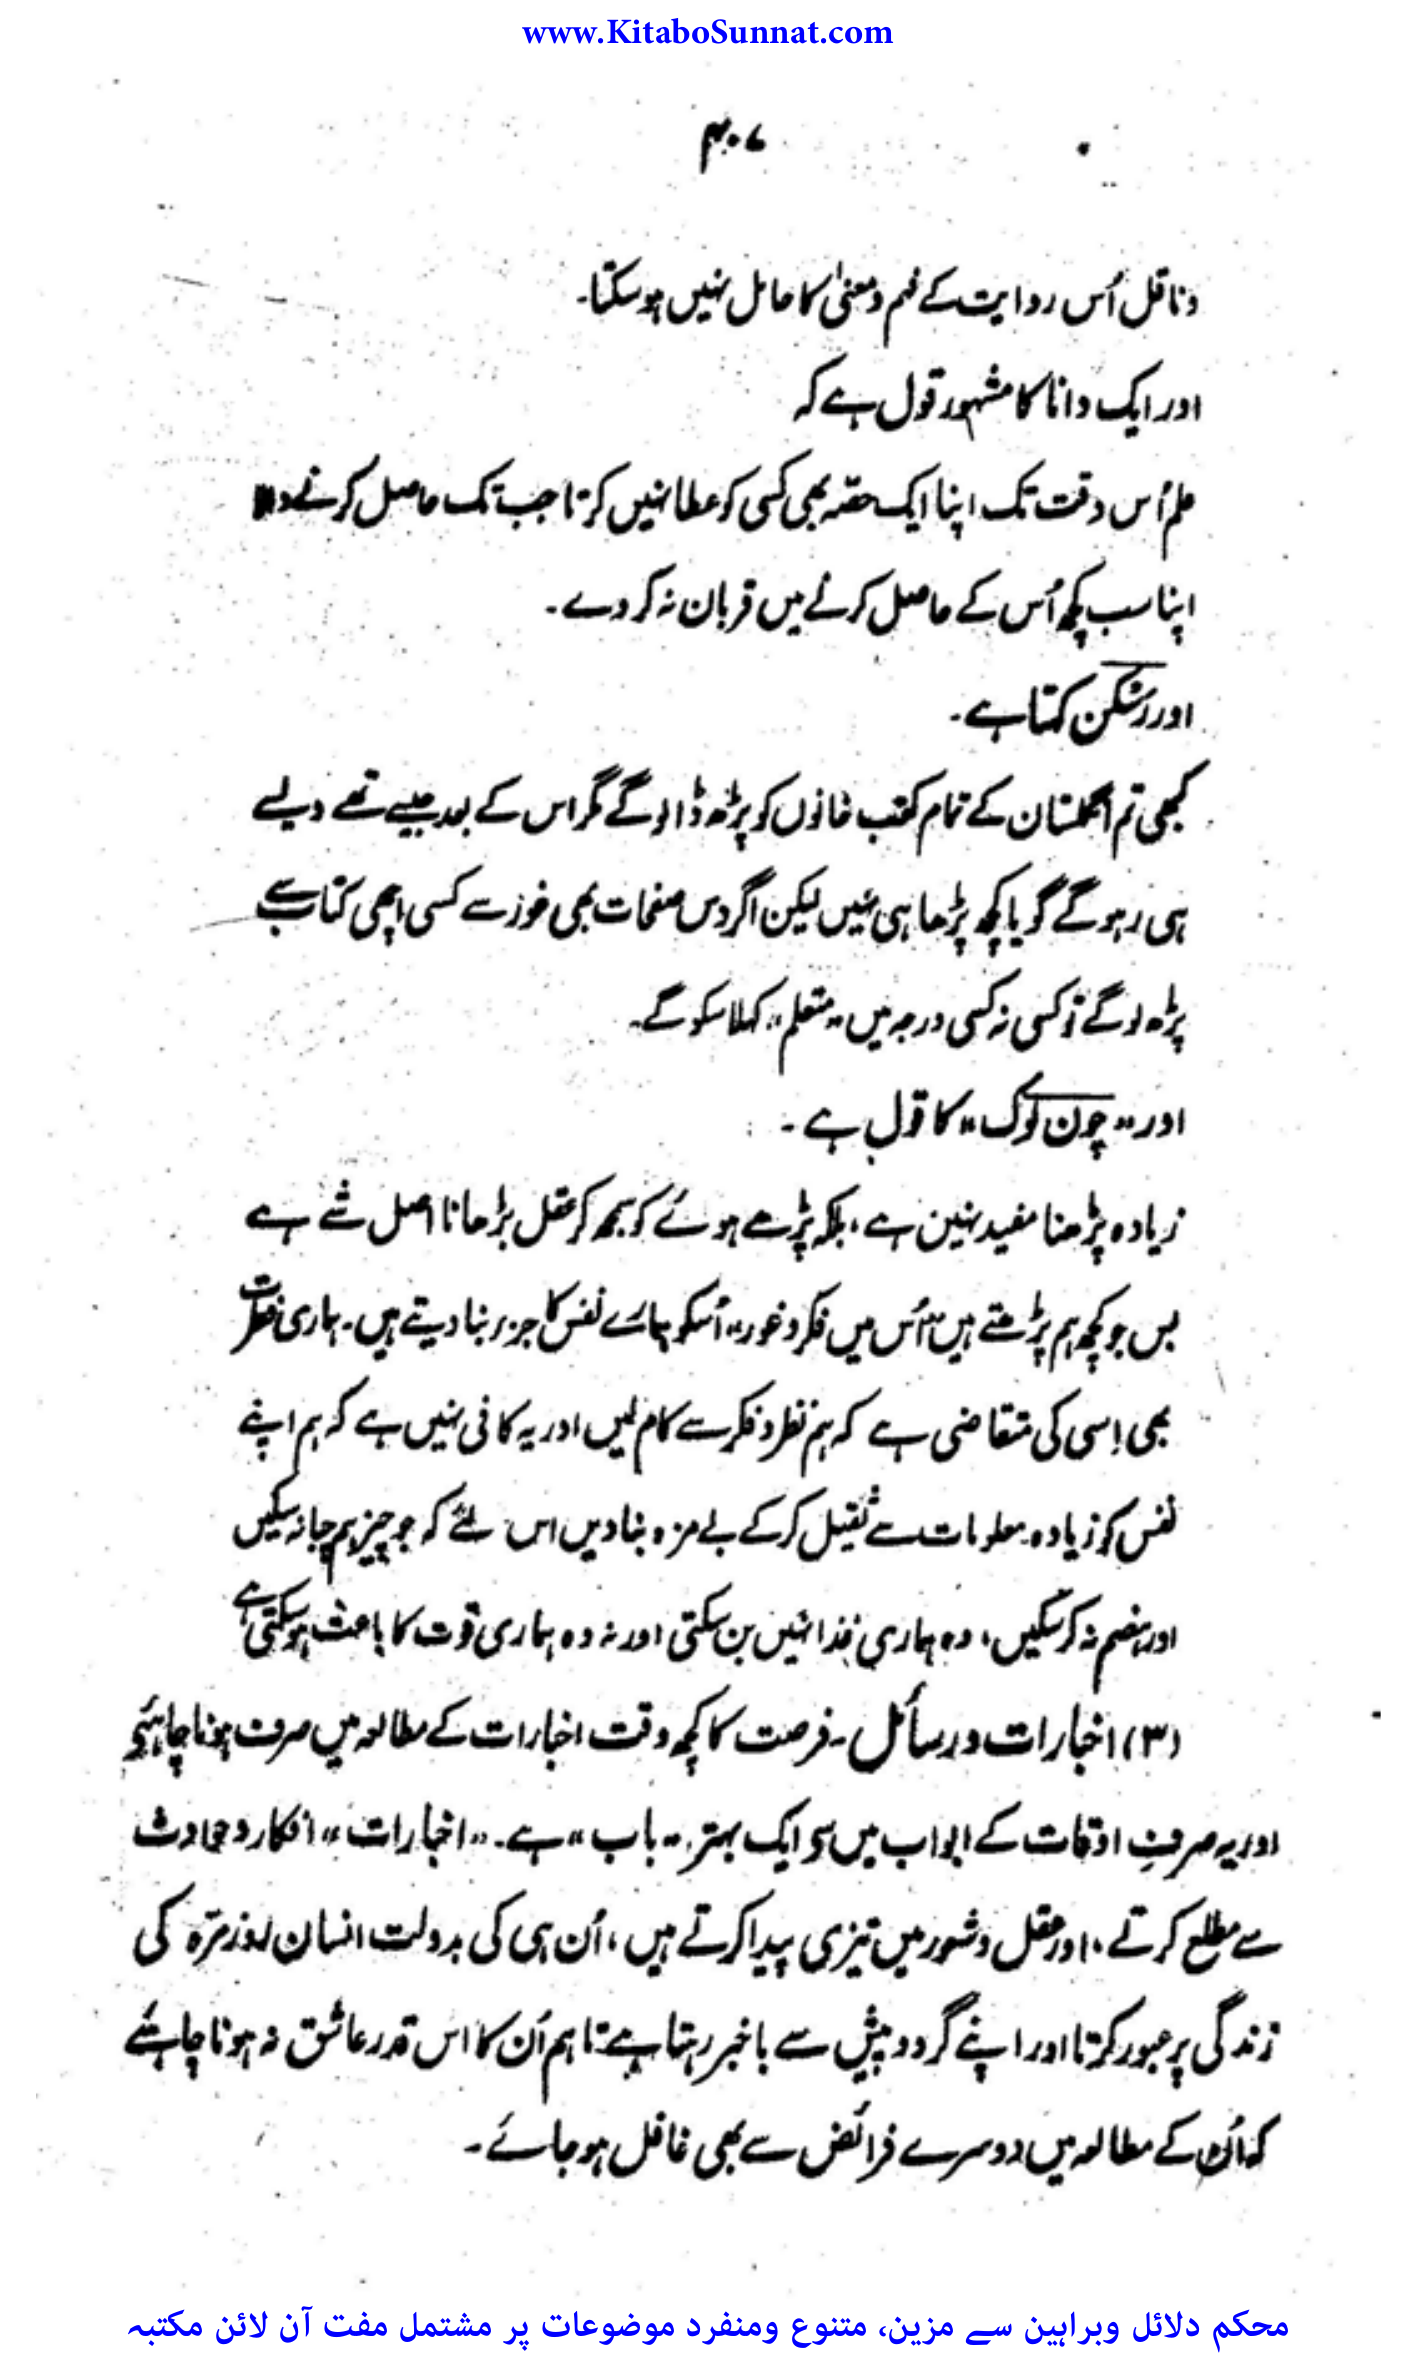 www.KitaboSunnat.com
۴۰۷
وناقل اُس روایت کے فہم و معنیٰ کا حامل نہیں ہو سکتا۔
اور ایک دانا کا مشہور قول ہے کہ
علم اُس وقت تک اپنا ایک حصّہ بھی کسی کو عطا نہیں کرتا جب تک حاصل کرنے والا
اپنا سب کچھ اُس کے حاصل کرنے میں قربان نہ کر دے۔
اور رسکن کہتا ہے۔
کبھی تم انگلستان کے تمام کتب خانوں کو پڑھ ڈالو گے مگر اس کے بعد جیسے تھے ویسے
ہی رہو گے گویا کچھ پڑھا ہی نہیں لیکن اگر دس صفحات بھی غور سے کسی اچھی کتاب سے
پڑھ لو گے تو کسی نہ کسی درجہ میں "متعلم" کہلا سکو گے۔
اور "جون لوک" کا قول ہے۔
زیادہ پڑھنا مفید نہین ہے، بلکہ پڑھے ہوئے کو سمجھ کر عقل بڑھانا اصل شے ہے
بس جو کچھ ہم پڑھتے ہیں "اُس میں فکر و غور" اُسکو ہمارے نفس کا جزء بنا دیتے ہیں۔ ہماری فطرت
بھی اِسی کی متقاضی ہے کہ ہم نظر و فکر سے کام لیں اور یہ کافی نہیں ہے کہ ہم اپنے
نفس کو زیادہ معلومات سے ثقیل کر کے بے مزہ بنا دیں اس لئے کہ جو چیز ہم چبا نہ سکیں
اور ہضم نہ کر سکیں، وہ ہماری غذا نہیں بن سکتی اور نہ وہ ہماری قوت کا باعث ہو سکتی ہے
(۳) اخبارات و رسائل۔ فرصت کا کچھ وقت اخبارات کے مطالعہ میں صرف ہونا چاہئیے
اور یہ صرفِ اوقات کے ابواب میں سی ایک بہتر "باب" ہے۔ "اخبارات" افکار و حوادث
سے مطلع کرتے، اور عقل و شعور میں تیزی پیدا کرتے ہیں، اُن ہی کی بدولت انسان روزمرّہ کی
زندگی پر عبور کرتا اور اپنے گردو پیش سے باخبر رہتا ہے تاہم اُن کا اس قدر عاشق نہ ہونا چاہئے
کہ اُن کے مطالعہ میں دوسرے فرائض سے بھی غافل ہو جائے۔
محکم دلائل وبراہین سے مزین، متنوع ومنفرد موضوعات پر مشتمل مفت آن لائن مکتبہ